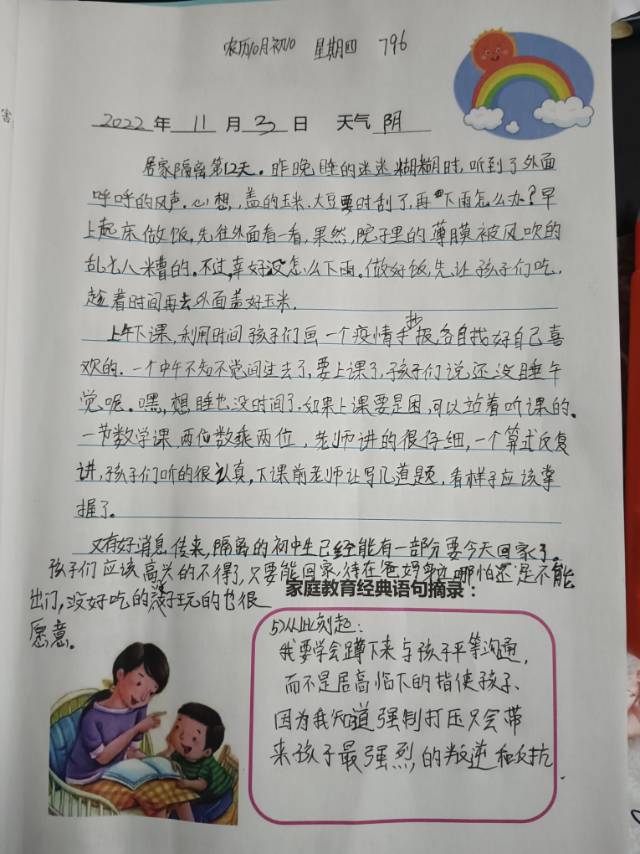 农历10月初10 星期四 796
2022 年 11 月 3 日 天气 阴
居家隔离第12天。昨晚睡的迷迷糊糊时,听到了外面
呼呼的风声。心想,盖的玉米、大豆要时刮了,再下雨怎么办?早
上起床做饭,先往外面看一看,果然,院子里的薄膜被风吹的
乱七八糟的。不过,幸好没怎么下雨。做好饭,先让孩子们吃,
趁着时间再去外面盖好玉米.
上午下课,利用时间孩子们画一个疫情手抄报,各自找好自己喜
欢的.一个中午不知不觉间过去了,要上课了,孩子们说还没睡午
觉呢。嘿,想睡也没时间了,如果上课要是困,可以站着听课的。
一节数学课,两位数乘两位,老师讲的很仔细,一个算式反复
讲,孩子们听的很认真,下课前老师让写几道题,看样子应该掌
握了。
又有好消息传来,隔离的初中生已经能有一部分要今天回家了。
孩子们应该高兴的不得了,只要能回家,待在爸妈身边哪怕还是不能
出门,没好吃的没好玩的也很
愿意。
家庭教育经典语句摘录:
5)从此刻起:
我要学会蹲下来与孩子平等沟通,
而不是居高临下的指使孩子、
因为我知道强制打压只会带
来孩子最强烈,的叛逆和反抗.
害